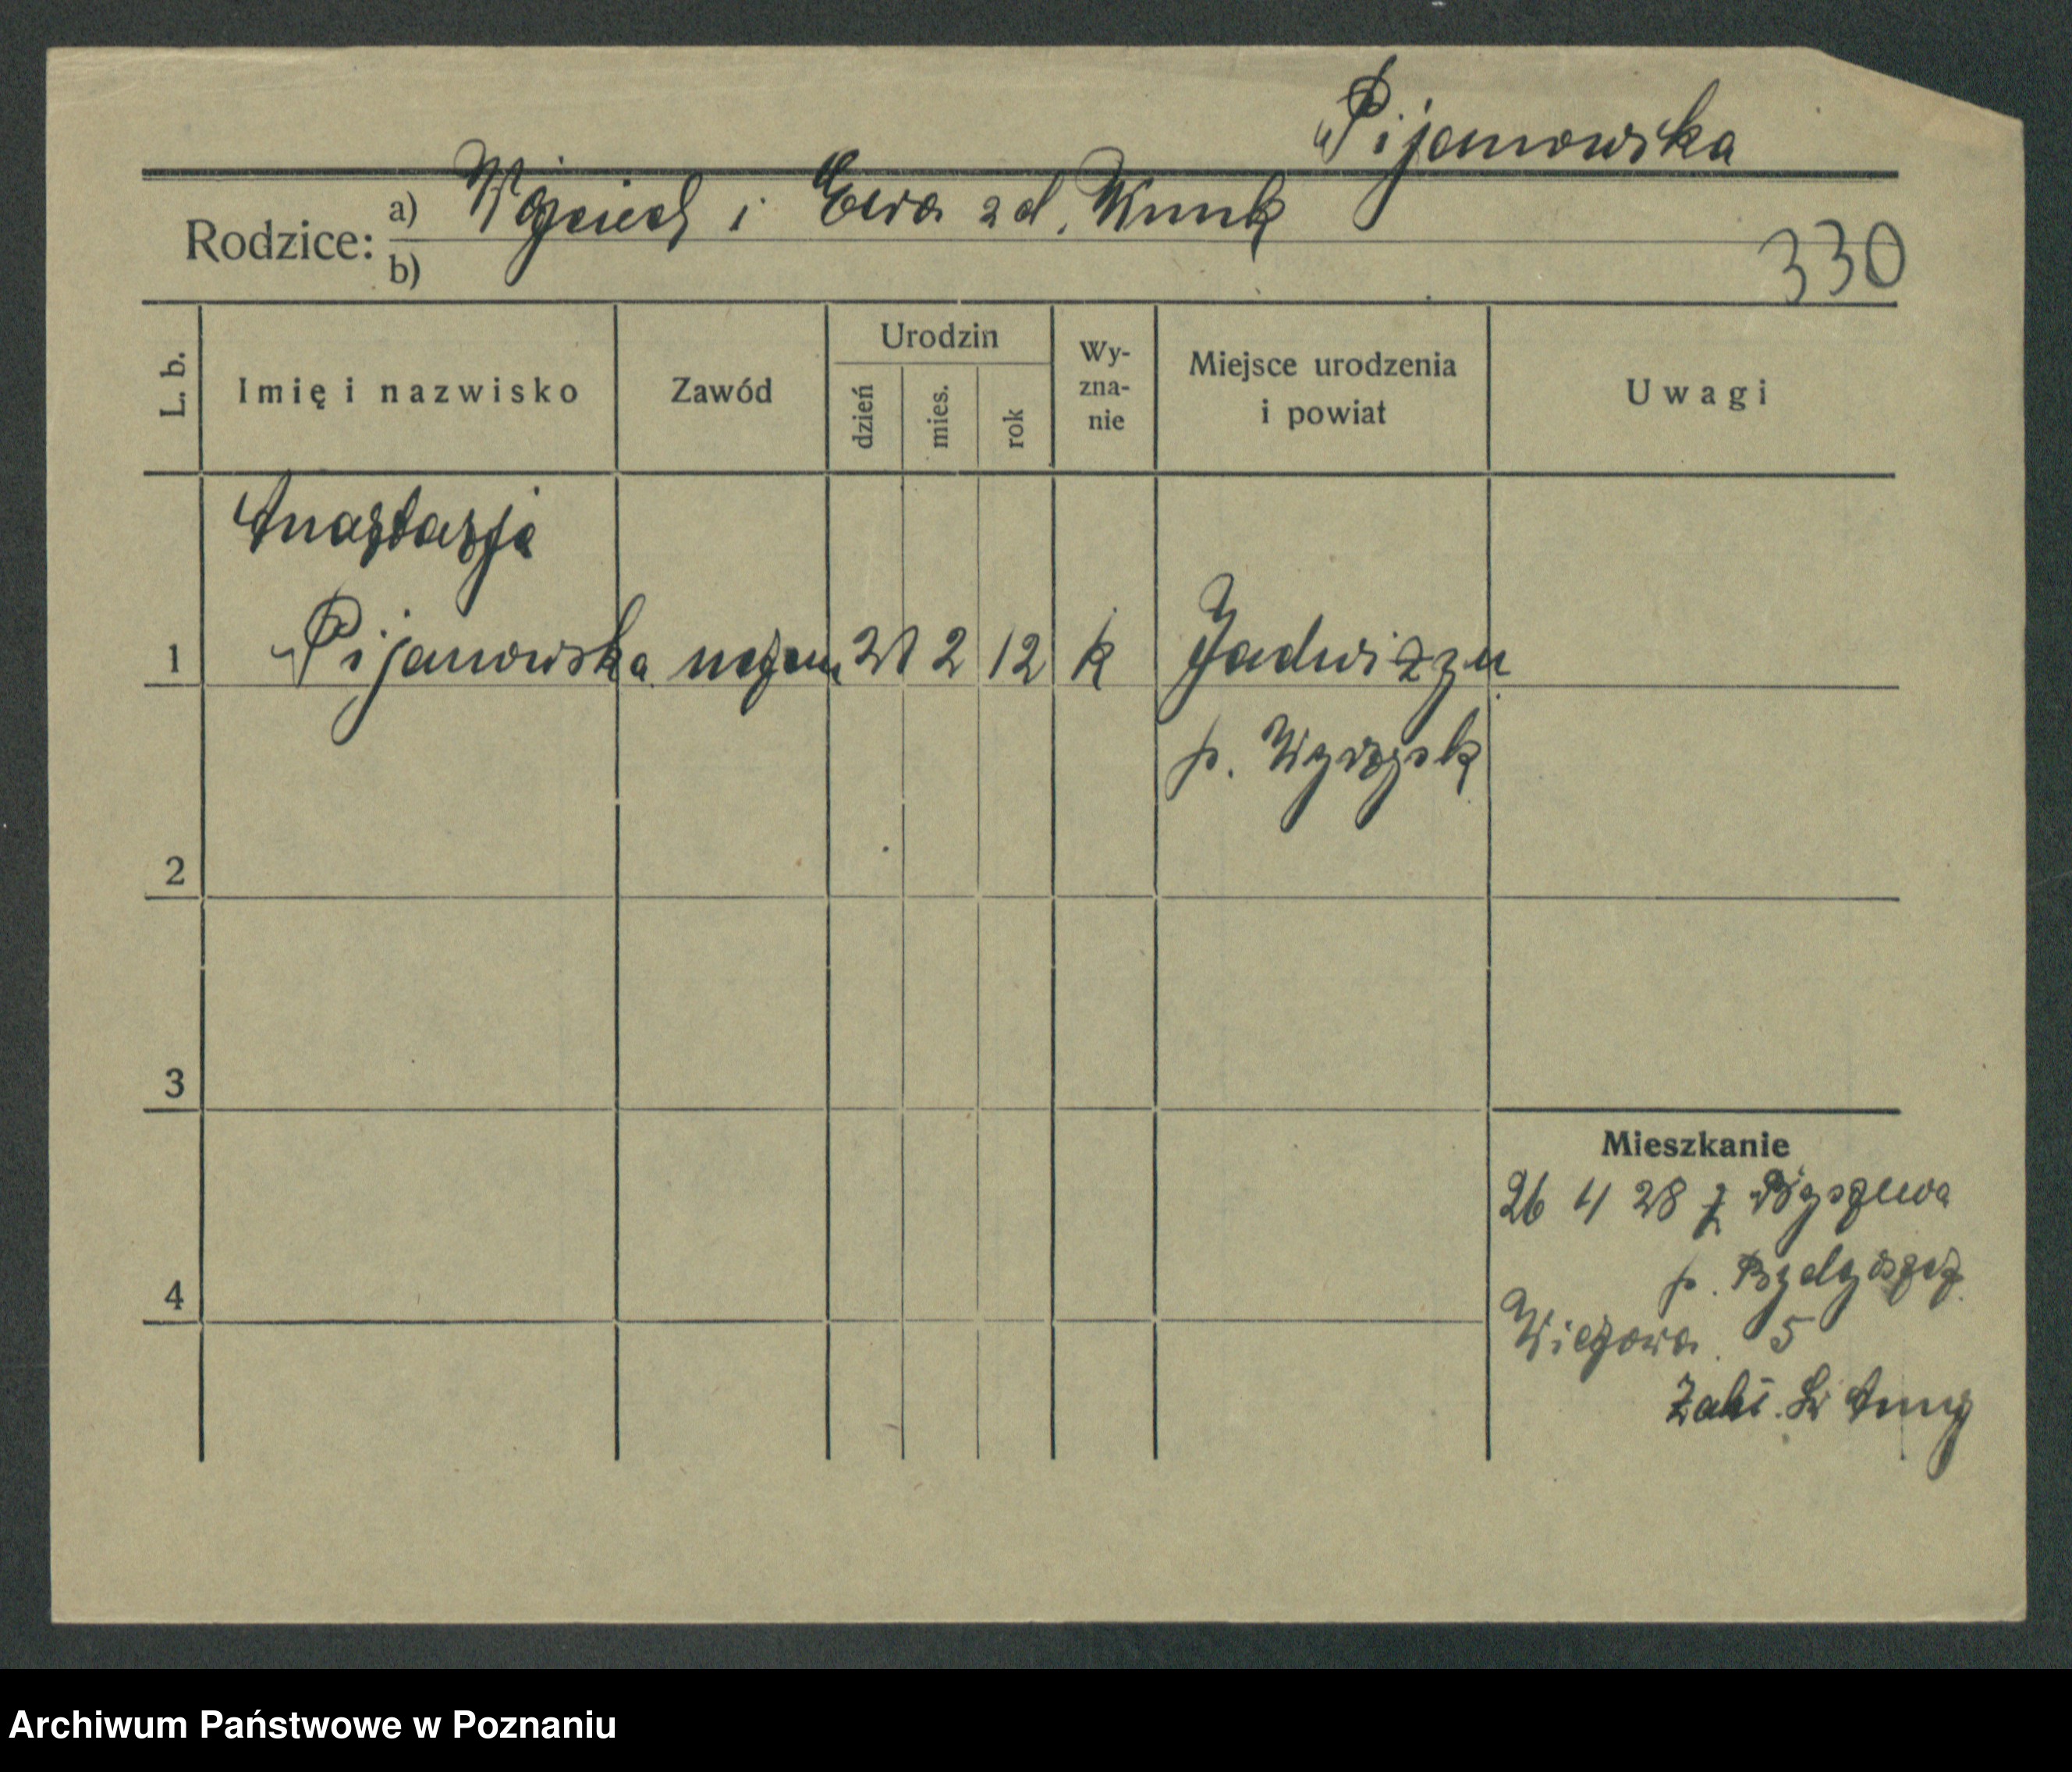 Pijanowska
Rodzice: a) Wojciech i Ewa zd. Wnuk
b)
330
L. b. Imię i nazwisko Zawód Urodzin dzień mies. rok Wy-zna-nie Miejsce urodzenia i powiat Uwagi
Anastazja
1 Pijanowska uczen 21 2 12 k Jadwiżyn
p. Wyrzysk
2
3
Mieszkanie
26 4 28 z Byszewa
4 p. Bydgoszcz
Wieżowa 5
Zakł. Św Anny
Archiwum Państwowe w Poznaniu